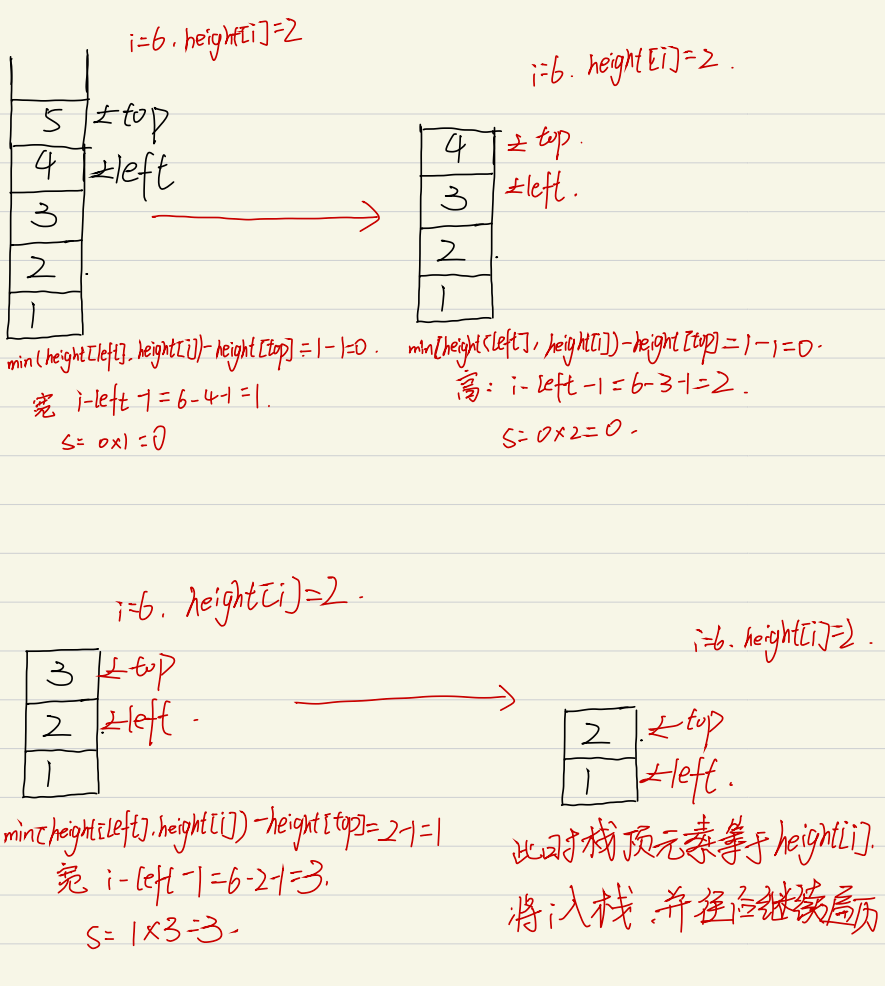 i=6. height[i]=2
5 ←top
4 ←left
3
2
1
min(height[left], height[i])-height[top]=1-1=0.
宽 i-left-1=6-4-1=1.
S=0×1=0
i=6. height[i]=2.
4 ←top.
3 ←left.
2
1
min(height[left], height[i])-height[top]=1-1=0.
高: i-left-1=6-3-1=2.
S=0×2=0.
i=6. height[i]=2.
3 ←top
2 ←left.
1
min(height[left], height[i])-height[top]=2-1=1
宽 i-left-1=6-2-1=3.
S=1×3=3.
i=6. height[i]=2.
2 ←top
1 ←left.
此时栈顶元素等于height[i].
将i入栈,并往后继续遍历